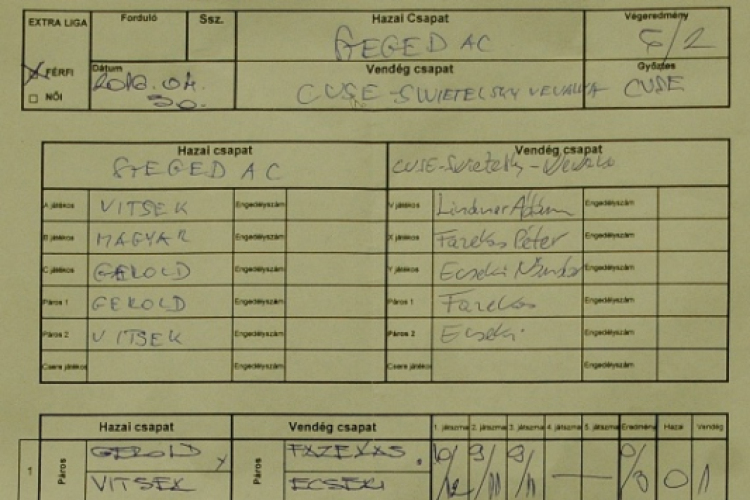 EXTRA LIGA Forduló Ssz. Hazai Csapat Végeredmény
SZEGED AC 6/2
FÉRFI Dátum Vendég csapat Győztes
2016.04.30. CUSE-SWIETELSKY VEVALKA CUSE
NŐI
Hazai csapat Vendég csapat
SZEGED AC CUSE-Swietelsky-
A játékos VITSEK Engedélyszám V játékos Lindner Ádám Engedélyszám
B játékos MAGYAR Engedélyszám X játékos Fazekas Péter Engedélyszám
C játékos GEROLD Engedélyszám Y játékos Ecseki Nándor Engedélyszám
Páros 1 GEROLD Engedélyszám Páros 1 Fazekas Engedélyszám
Páros 2 VITSEK Engedélyszám Páros 2 Ecseki Engedélyszám
Csere játékos Engedélyszám Csere játékos Engedélyszám
Hazai csapat Vendég csapat 1. játszma 2. játszma 3. játszma 4. játszma 5. játszma Eredmény Hazai Vendég
1 Páros GEROLD Páros FAZEKAS 10/12 9/11 9/11 0/3 0 1
VITSEK ECSEKI